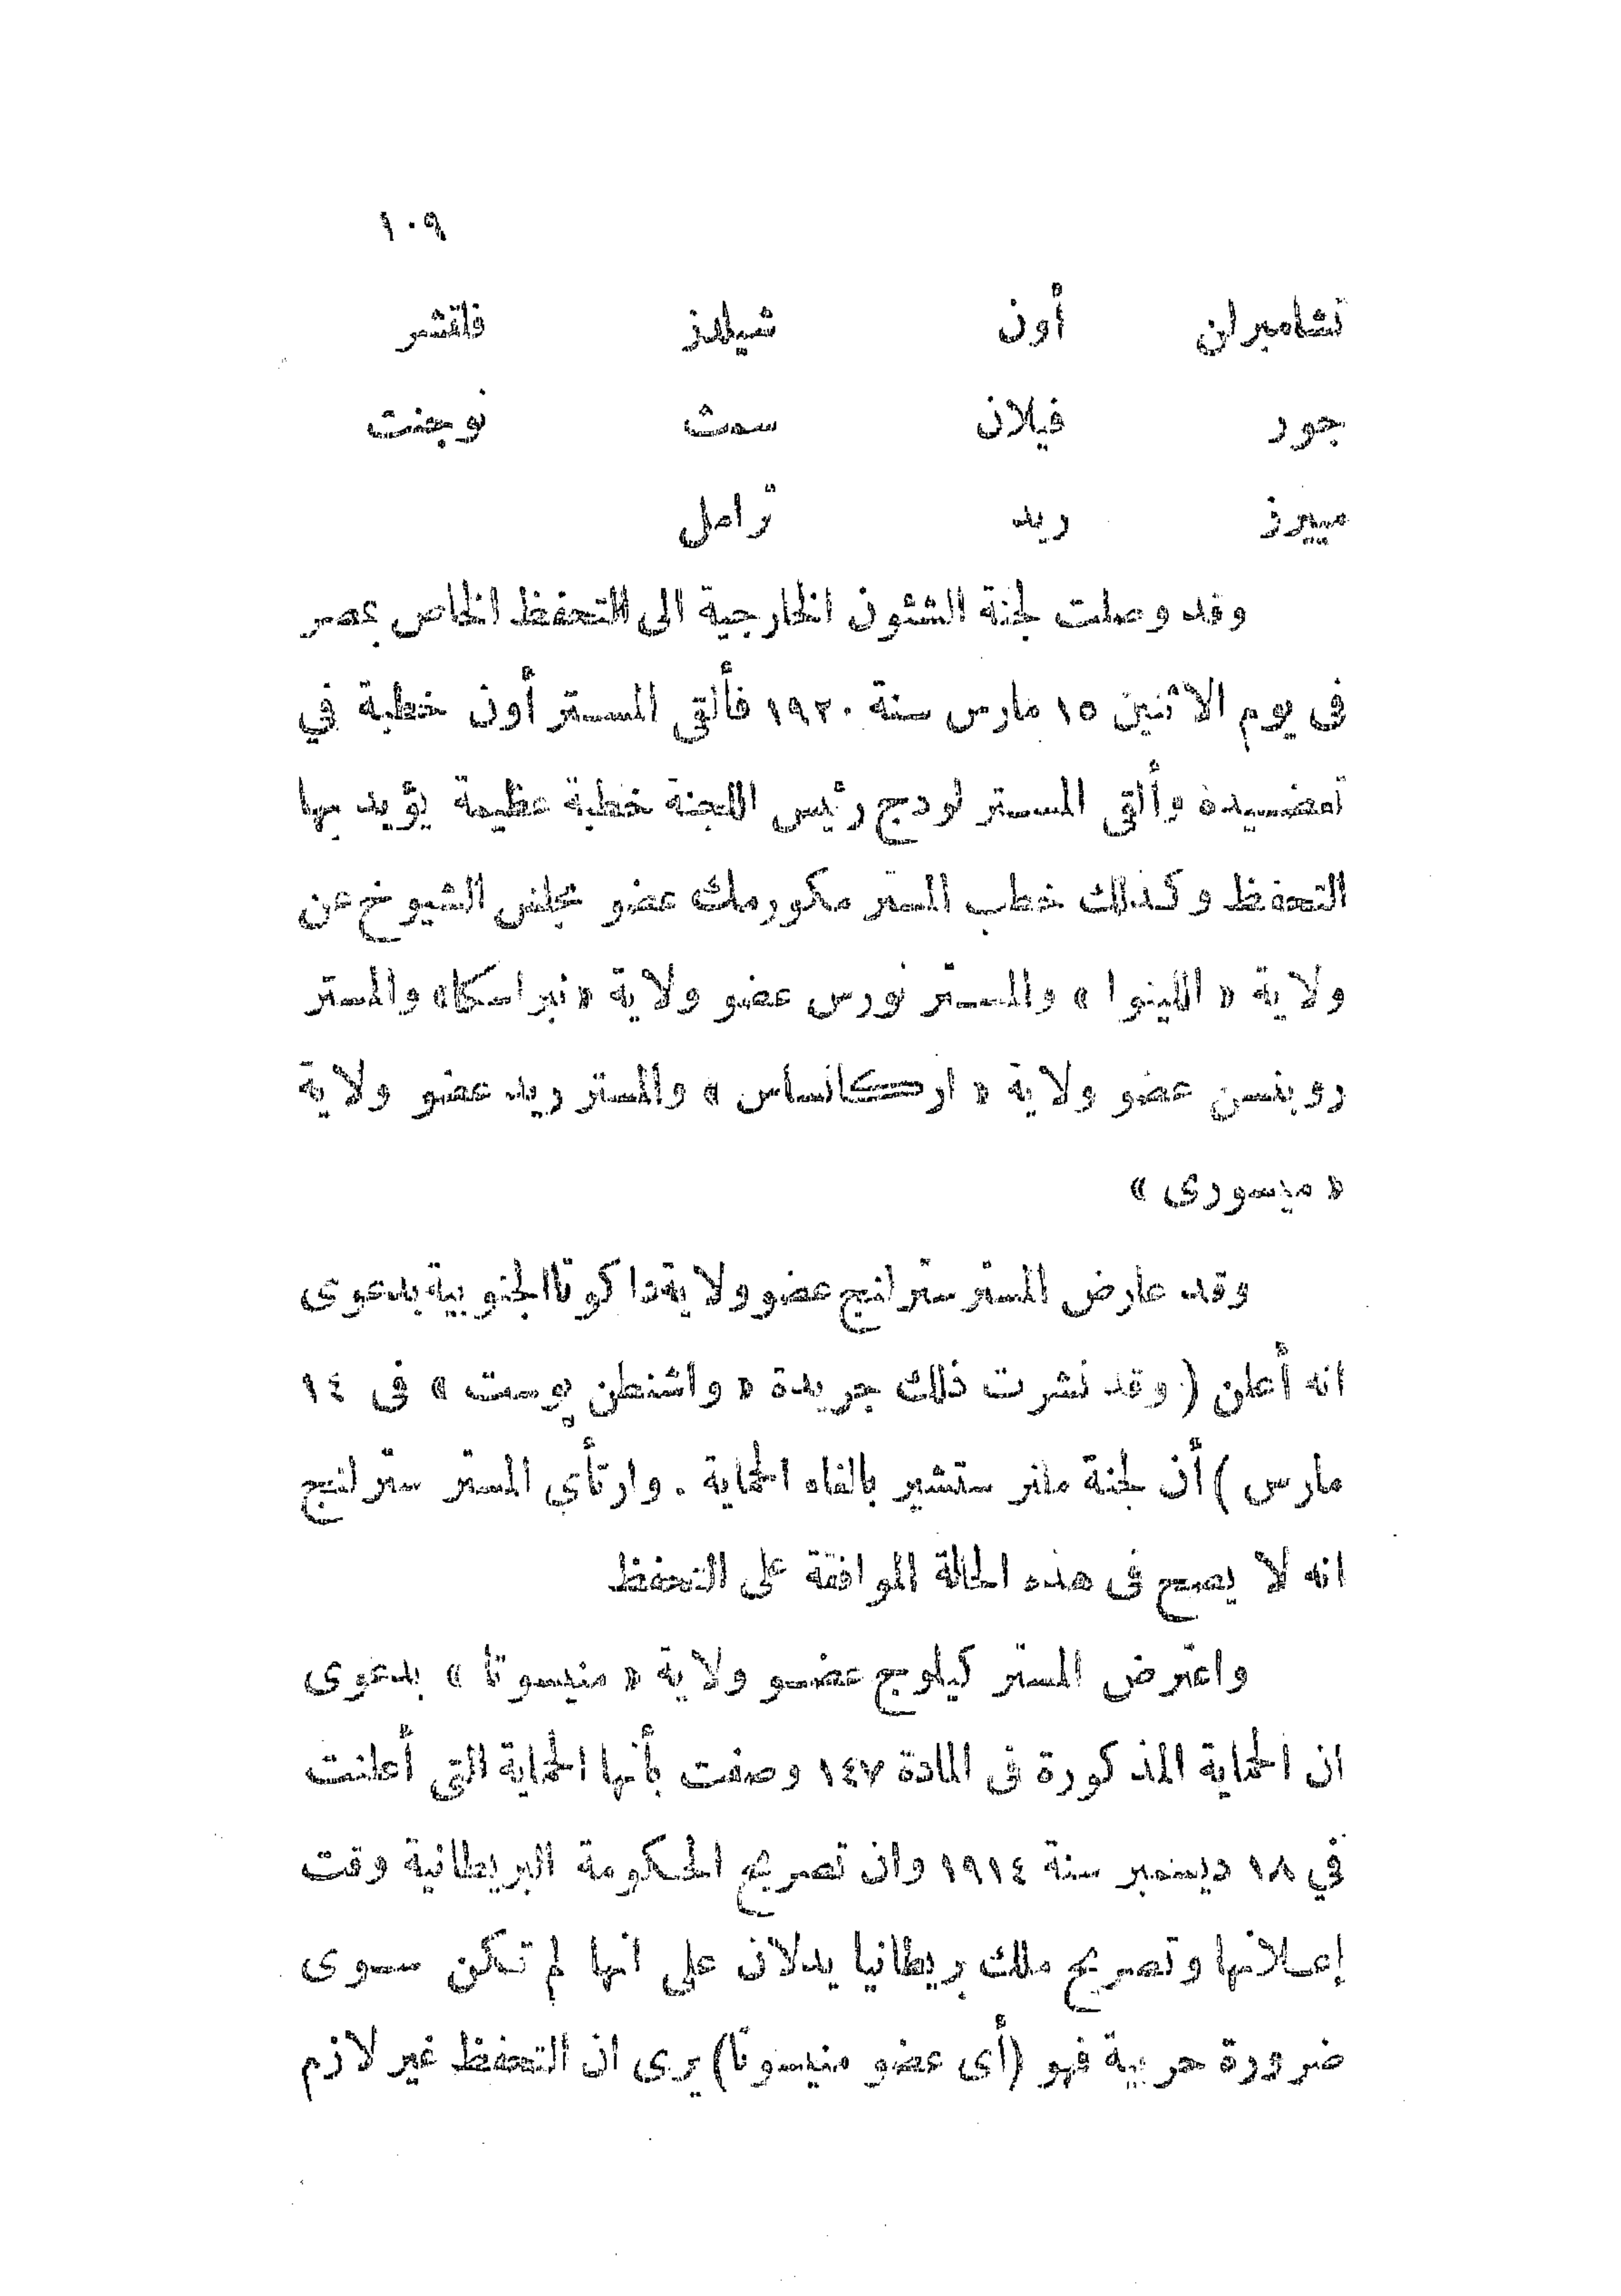 ١٠٩
تشامبرلن أون شيلدز فلتشر
جور فيلان سمث نوجنت
مييرز ريد ترامل
وقد وصلت لجنة الشئون الخارجية الى التحفظ الخاص بمصر
فى يوم الاثنين ١٥ مارس سنة ١٩٢٠ فألقى المستر أون خطبة في
تعضيده وألقى المستر لودج رئيس اللجنة خطبة عظيمة يؤيد بها
التحفظ وكذلك خطب المستر مكورمك عضو مجلس الشيوخ عن
ولاية « اللينوا » والمستر نورس عضو ولاية «نبراسكا» والمستر
روبنسن عضو ولاية « اركانساس » والمستر ريد عضو ولاية
« ميسورى »
وقد عارض المستر سترلنج عضو ولاية داكوتا الجنوبية بدعوى
انه أعلن ( وقد نشرت ذلك جريدة « واشنطن پوست » فى ١٤
مارس ) أن لجنة ملنر ستشير بالغاء الحماية . وارتأى المستر سترلنج
انه لا يصح فى هذه الحالة الموافقة على التحفظ
واعترض المستر كيلوج عضو ولاية « منيسوتا » بدعوى
ان الحماية المذكورة فى المادة ١٤٧ وصفت بأنها الحماية التى أعلنت
في ١٨ ديسمبر سنة ١٩١٤ وان تصريح الحكومة البريطانية وقت
إعلانها وتصريح ملك بريطانيا يدلان على انها لم تكن سوى
ضرورة حربية فهو (أى عضو منيسوتا) يرى ان التحفظ غير لازم